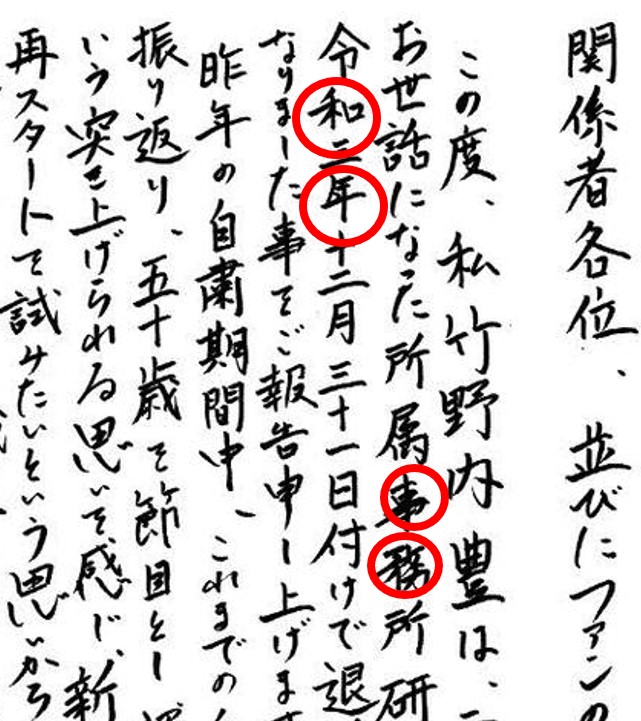 関係者各位、並びにファンの
この度、私竹野内豊は、
お世話になった所属事務所研
令和三年十二月三十一日付けで退
なりました事をご報告申し上げま
昨年の自粛期間中、これまでの
振り返り、五十歳を節目とし
いう突き上げられる思いを感じ、新
再スタートを試みたいという思いから